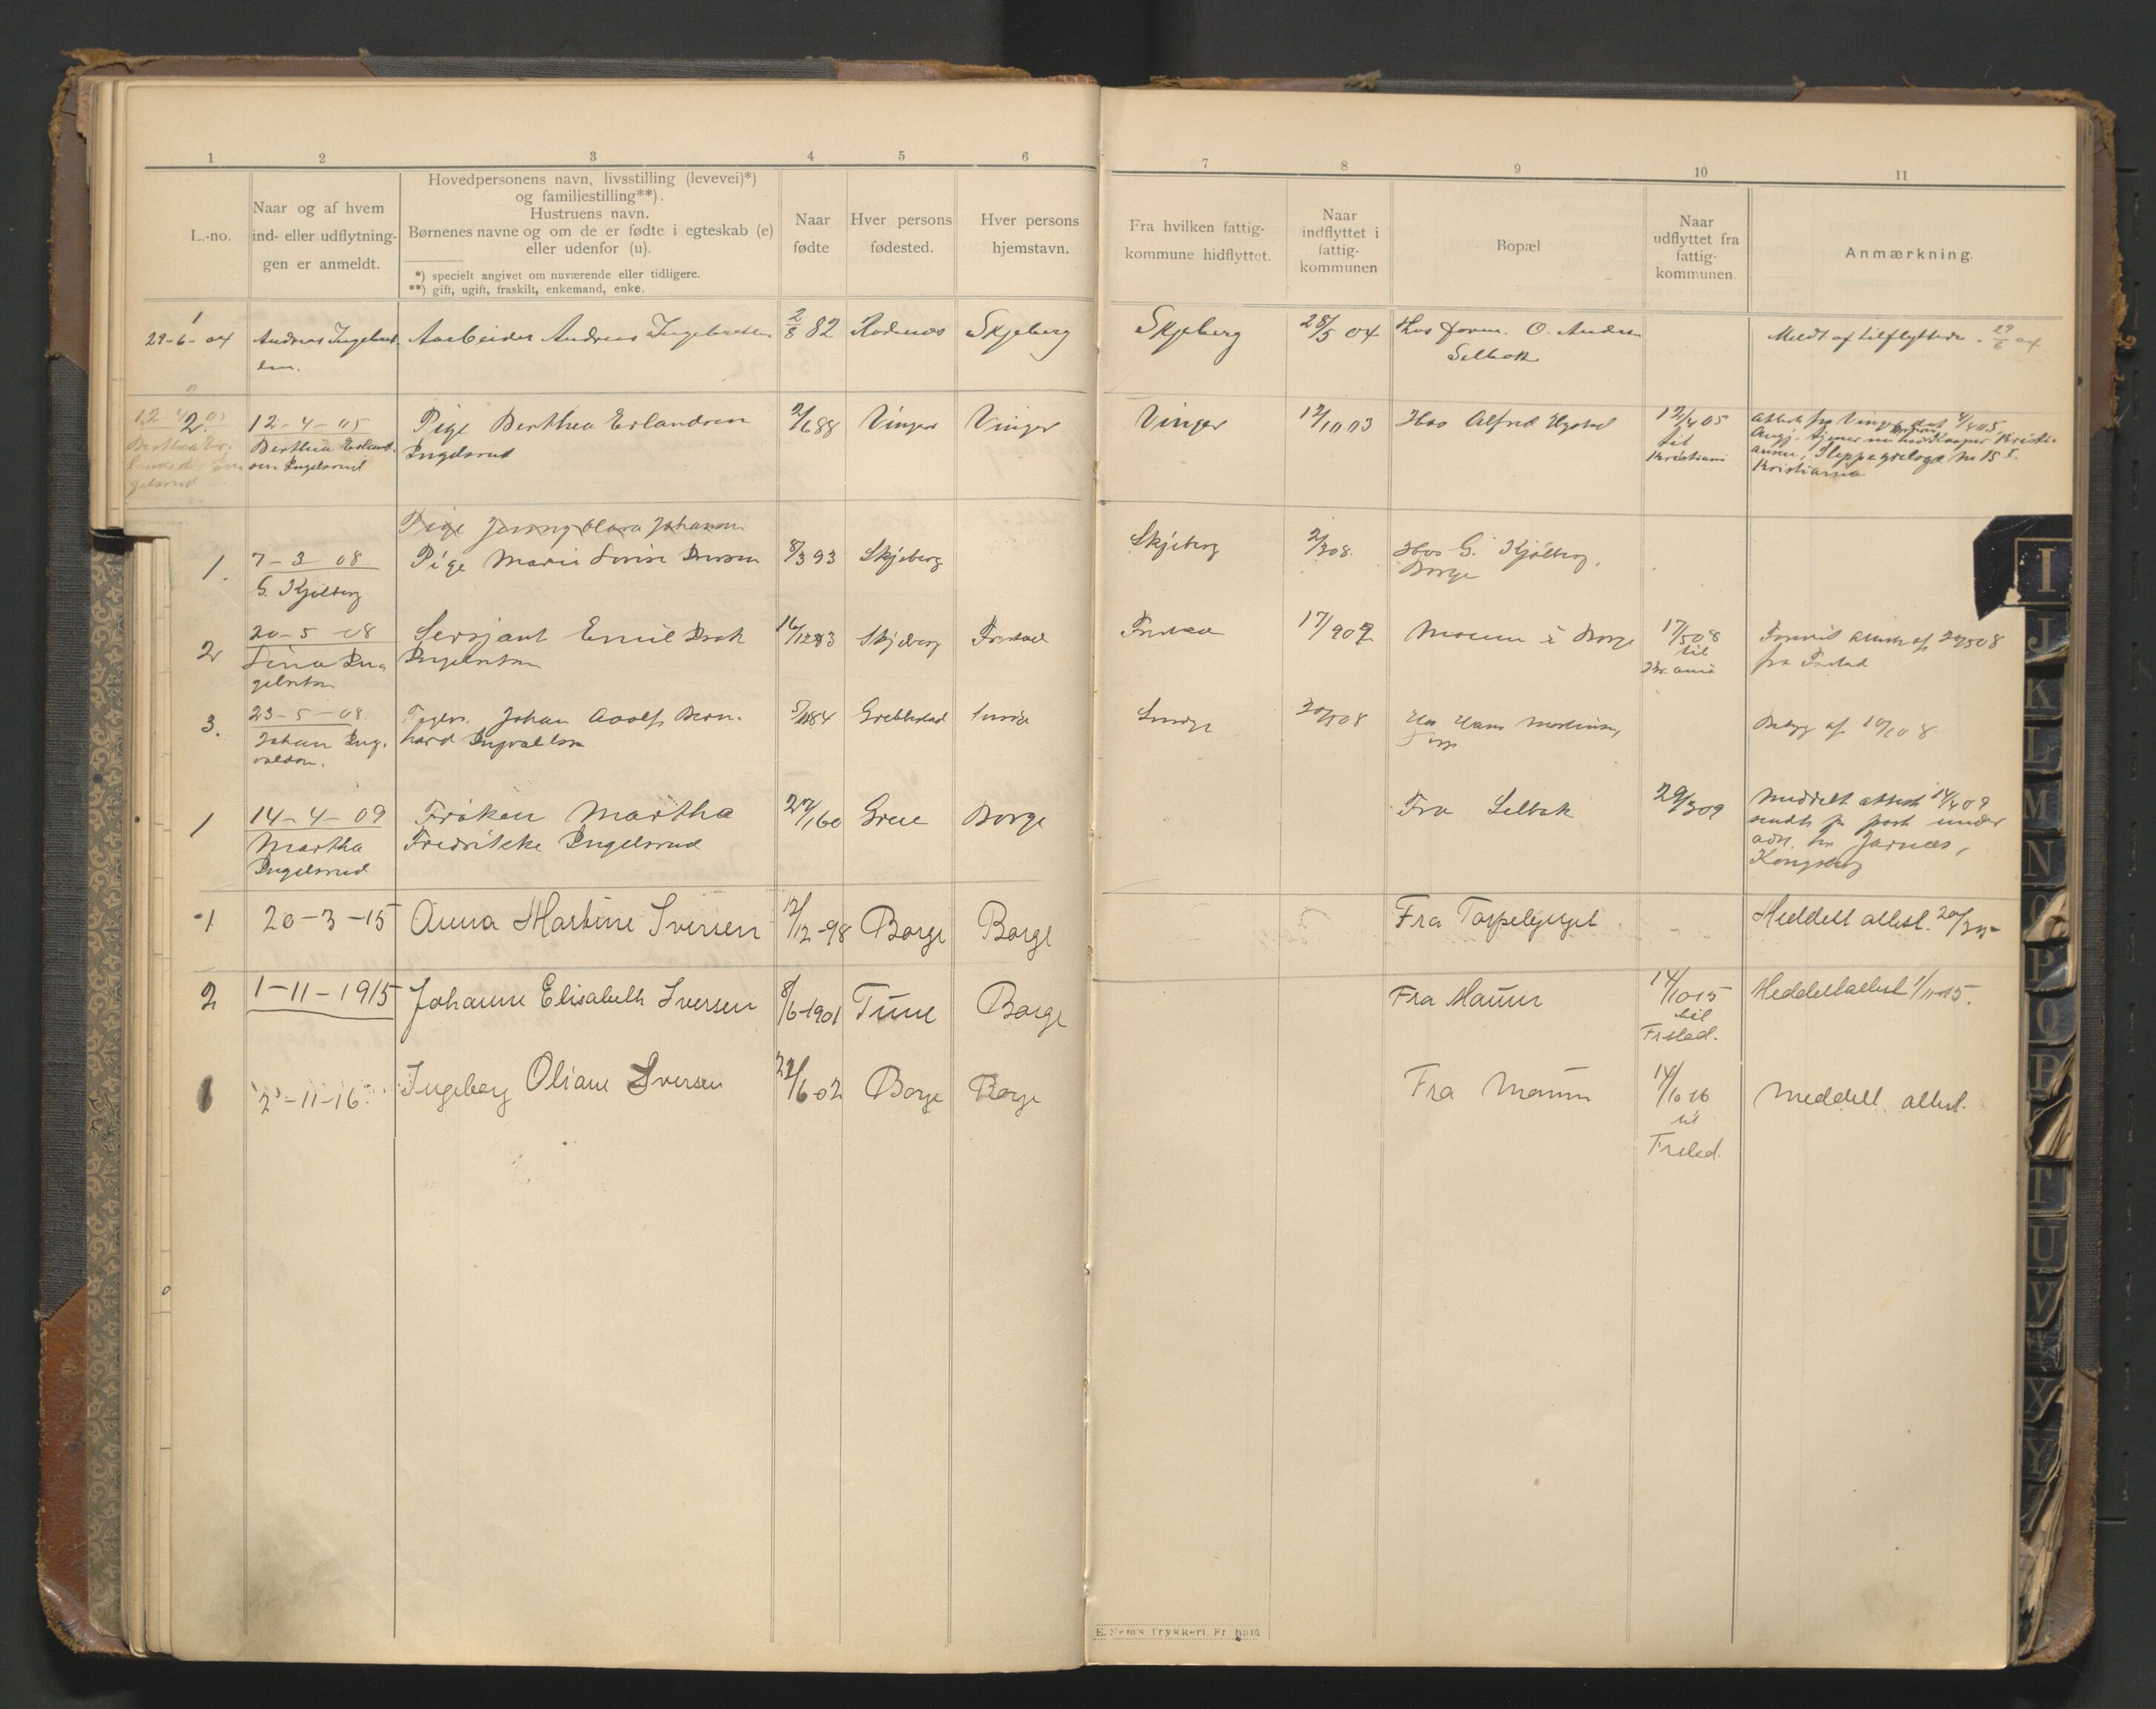 1 2 3 4 5 6 7 8 9 10 11
L.-no.
Naar og af hvem
ind- eller udflytnin-
gen er anmeldt.
Hovedpersonens navn, livsstilling (levevei)*)
og familiestilling**).
Hustruens navn.
Børnenes navne og om de er fødte i egteskab (e)
eller udenfor (u).
*) specielt angivet om nuværende eller tidligere.
**) gift, ugift, fraskilt, enkemand, enke.
Naar
fødte
Hver persons
fødested.
Hver persons
hjemstavn.
Fra hvilken fattig-
kommune hidflyttet.
Naar
indflyttet i
fattig-
kommunen
Bopæl
Naar
udflyttet fra
fattig-
kommunen.
Anmærkning.
1
29-6-04 Andreas Ingebret- Aarbeider Andreas Ingebretsen 2/8 82 Rødenes Skjeberg Skjeberg 28/5 04 Hos form. O. Andersen Meldt af tilflyttede. 29/6 04
sen. Selbak
2. 12-4-05 Pige Berthea Erlandsen 2/6 88 Vinger Vinger Vinger 12/10 03 Hos Alfred 12/4 05 Attest fra Vinger
Berthea Erland- Ingelsrud til
sen Ingelsrud Kristiania Kristiania
Pige Jenny Clara Johansen
1. 7-3-08 Pige Marie Lovise 8/3 93 Skjeberg Skjeberg 2/3 08. Hos G. Kjølberg,
G. Kjølberg Borge
2 20-5-08 Sersjant Emil 16/12 83 Skjeberg Frstad Frstad 17/9 07 Moum i Borge 17/5 08 af 20/5 08
Lina In- Ingebretsen til fra Frstad
gebretsen Kr.ania
3. 23-5-08. Johan Adolf Bern- 84 Grebbestad Sverige 08 Hos Hans
Johan Ing- hard Ingvaldsen
valdsen.
1 14-4-09 Frøken Martha 27/1 60 Grue Borge Fra Selbak 29/3 09 Meddelt attest 14/4 09
Martha Fredrikke Ingelsrud sendt pr post under
Ingelsrud adr. Jarnæs,
Kongsberg
1 20-3-15 Anna Martine Iversen 12/12-98 Borge Borge Fra Torpebjerget Meddelt attest. 20/3 15
2 1-11-1915 Johanne Elisabeth Iversen 8/6-1901 Tune Borge Fra Moum 14/10 15 Meddelt attest 1/11-15.
til
Frstad.
1 2-11-16. Ingeborg Oliane Iversen 22/6-02 Borge Borge Fra Moum 14/10 16 Meddelt attest.
til
Frstad.
E. Sem's Trykkeri, Fr.hald
I
J
K
L
M
N
O
P
Q
R
T
U
V
X
Y